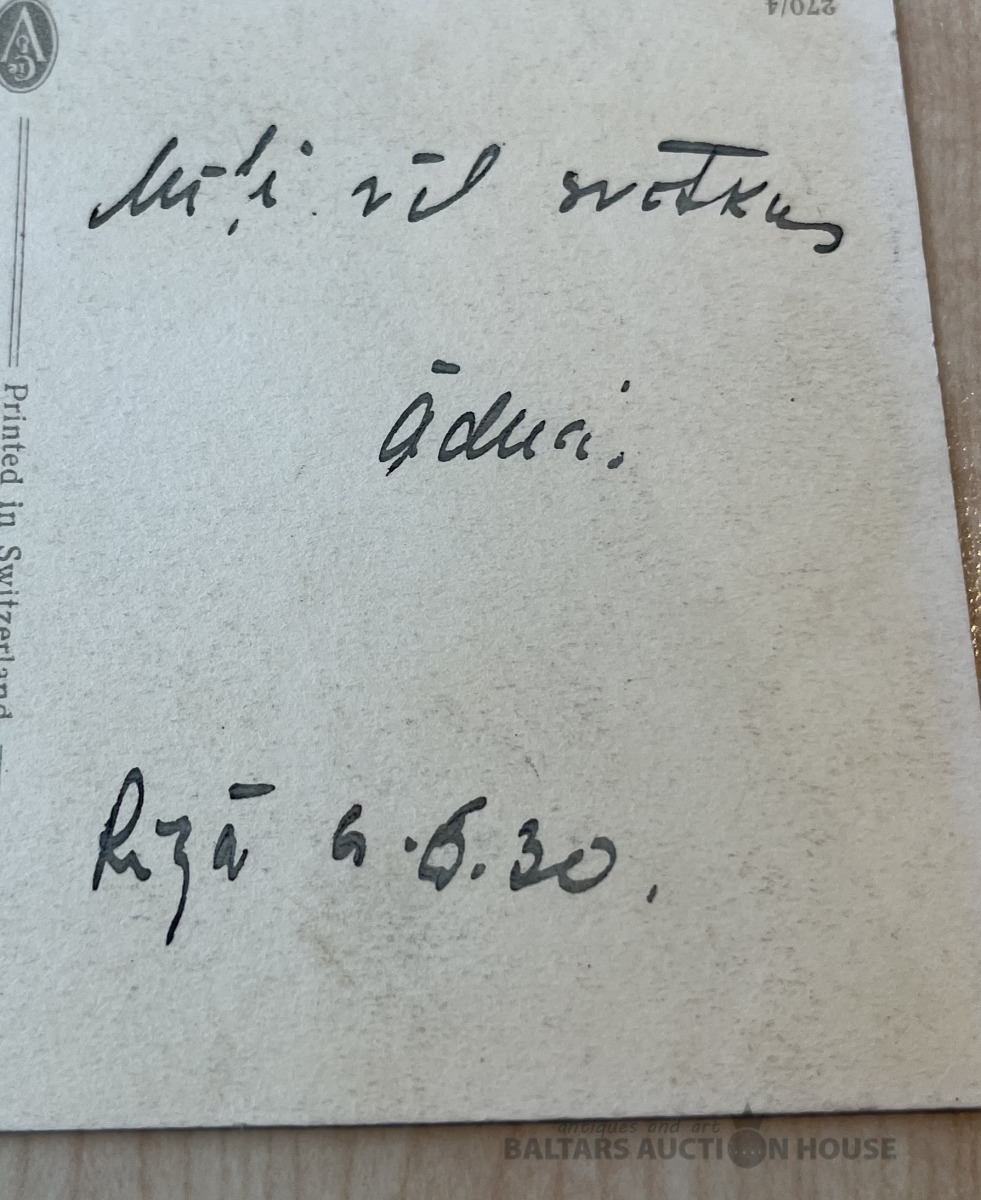 270/4
Mīļi vēl svētkus
Ādmi.
Rīgā 6.6.30.
Printed in Switzerland
antiques and art
BALTARS AUCTION HOUSE